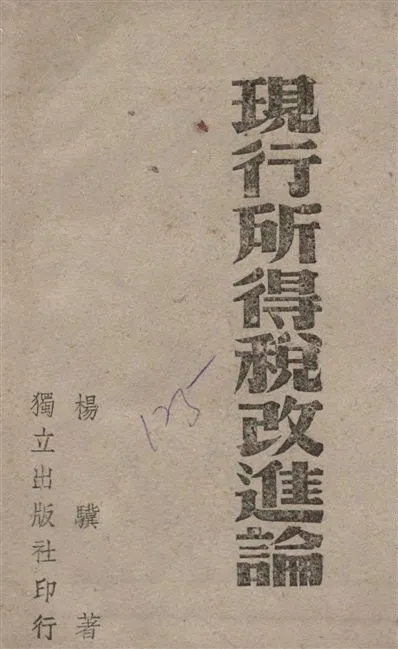 現行所得稅改進論
125
楊驥著
獨立出版社印行